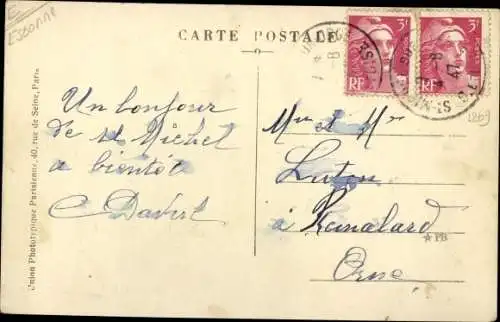 Esbonne
CARTE POSTALE
3F
RF
3F
RF
Un bonjour
de St Michel
à bientôt
Mr et Mme
à Remalard
Orne
1269
★ PB
Union Phototypique Parisienne, 40, rue de Seine, Paris